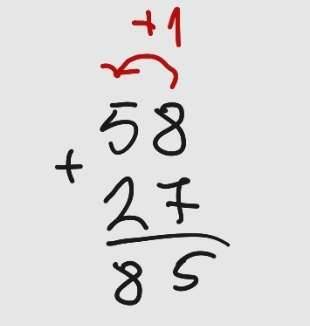 +1
58
+
27
85